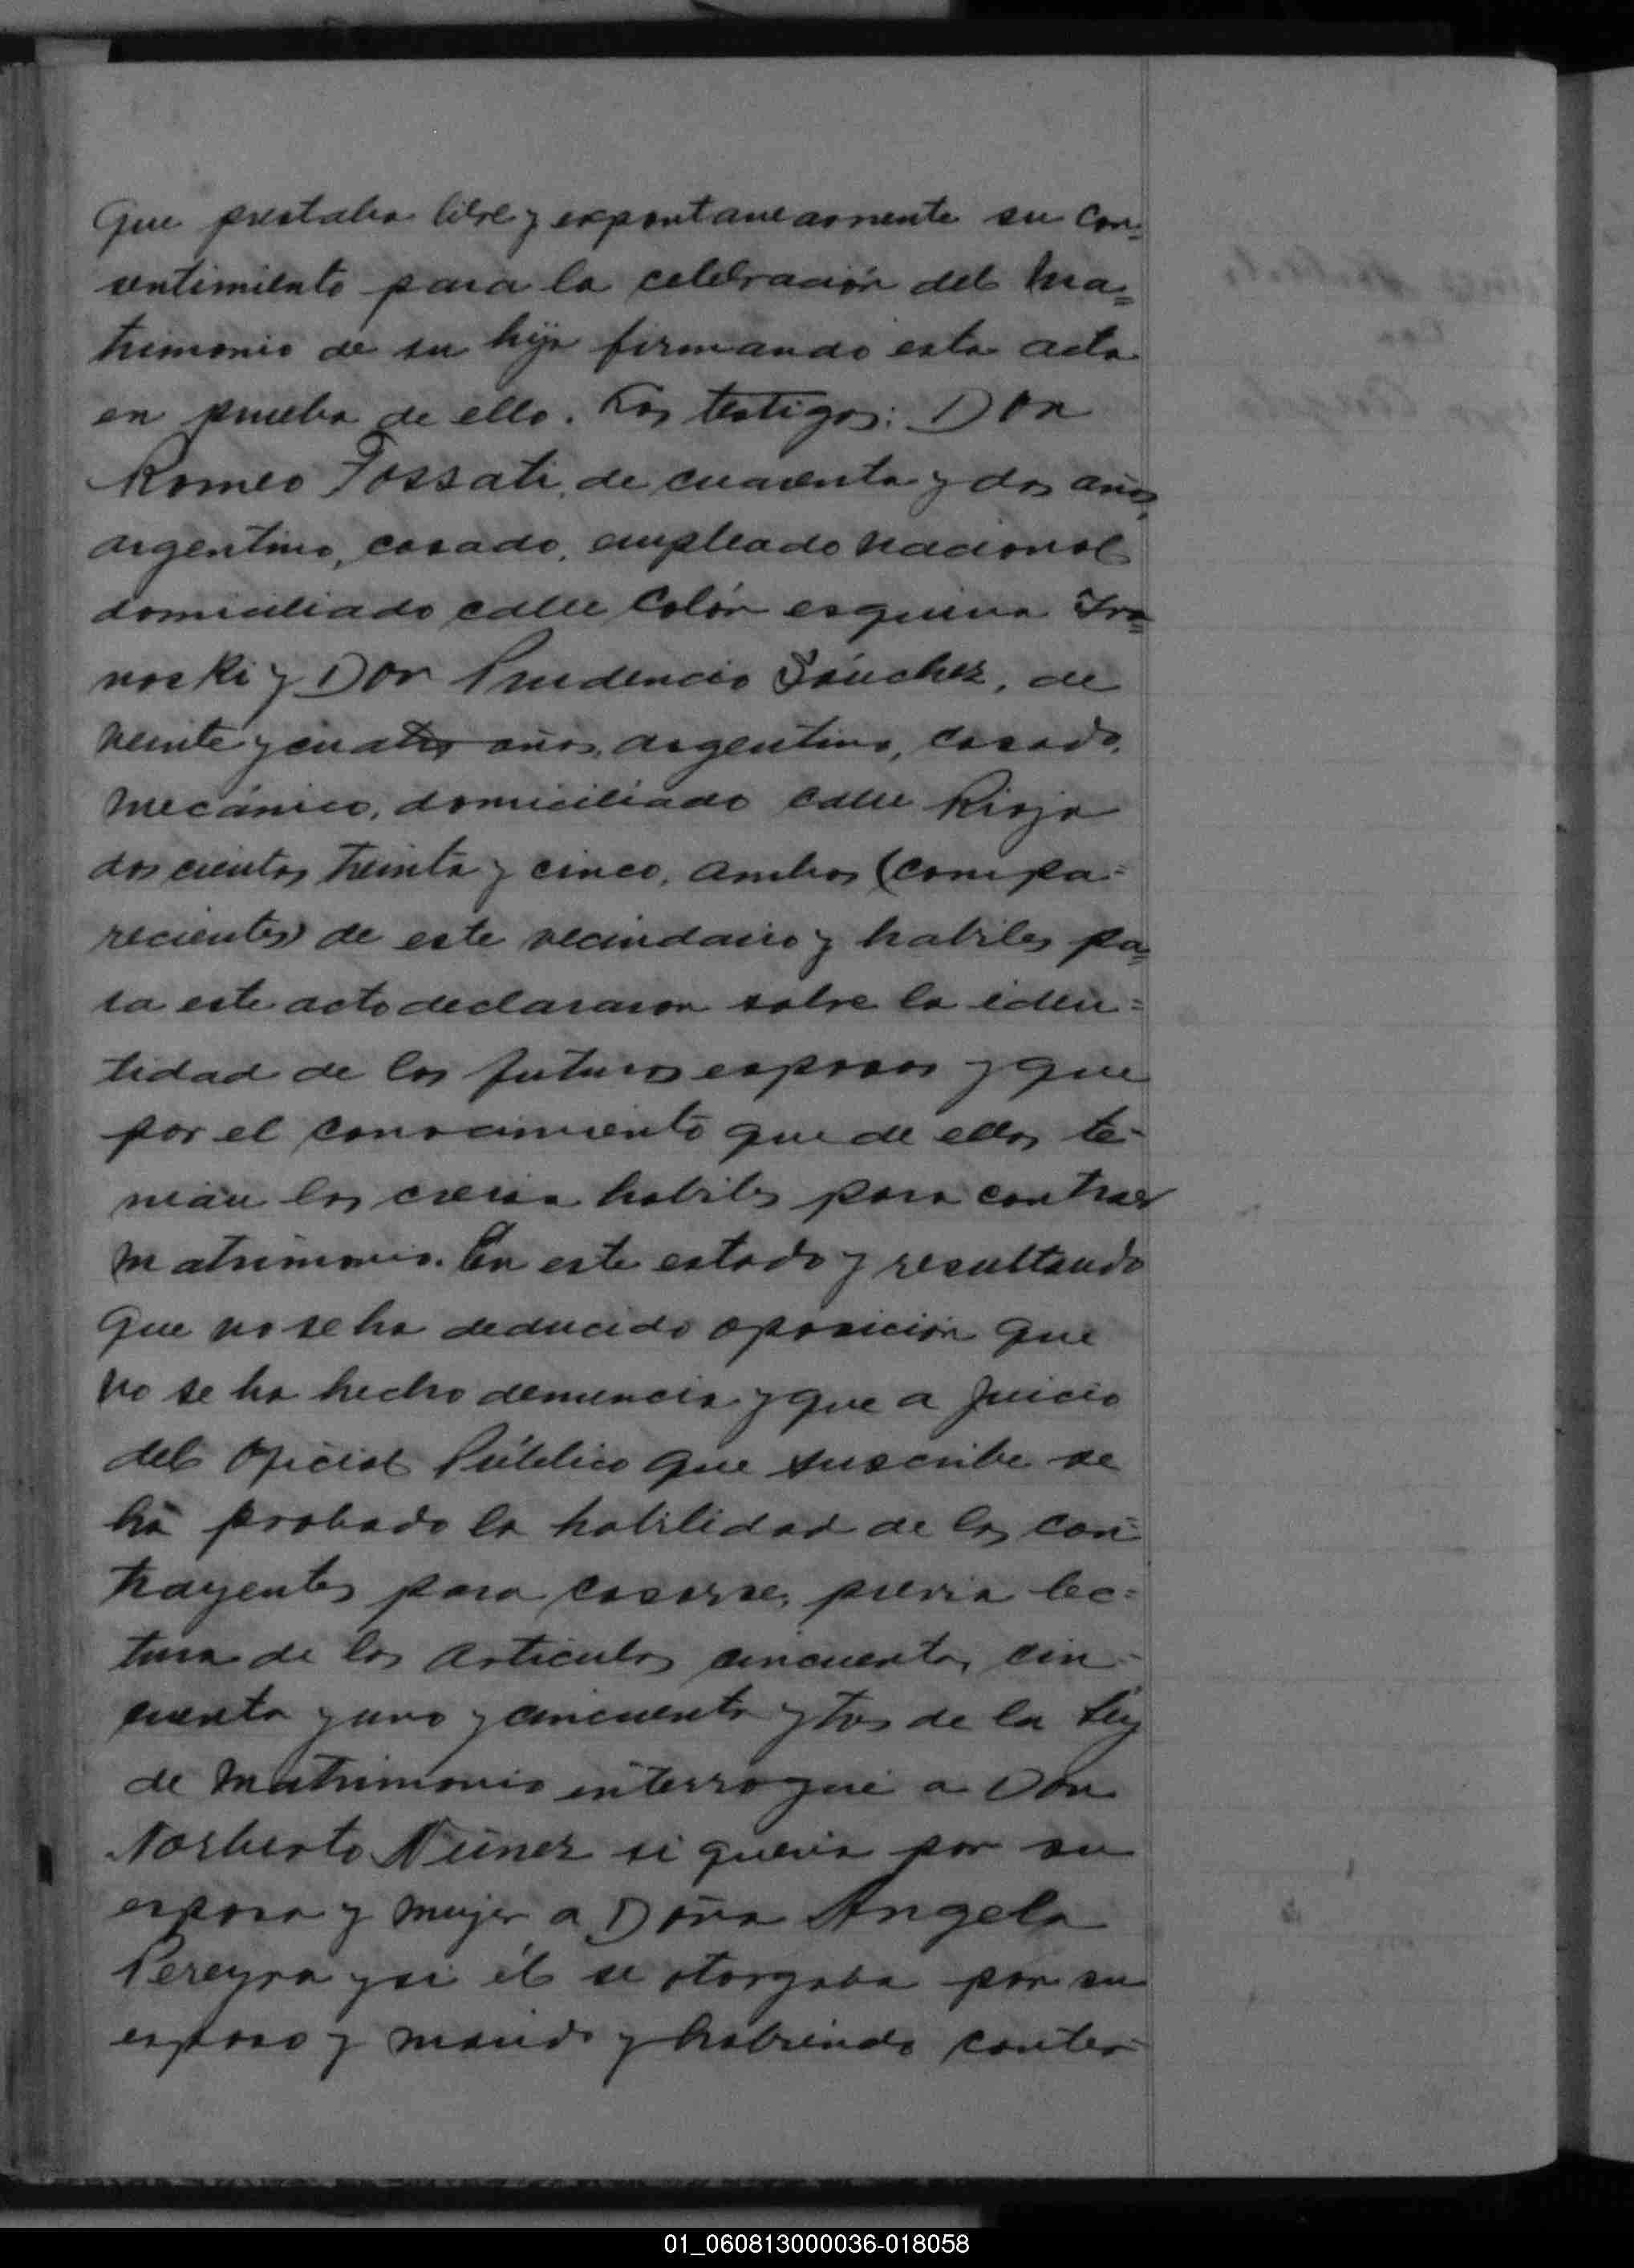 Que prestaba libre y expontaneamente su con=
sentimiento para la celebración del ma=
trimonio de su hija firmando esta acta
en prueba de ello. Los testigos: Don
Romeo Fossati, de cuarenta y dos años,
argentino, casado, empleado nacional
domiciliado calle Colón esquina Fra=
noski y Don Prudencio Sánchez, de
veinte y cuatro años, argentino, casado,
mecánico, domiciliado calle Rioja
doscientos treinta y cinco, ambos (compa=
recientes) de este vecindario y habiles pa=
ra este acto declararon sobre la iden=
tidad de los futuros esposos y que
por el conocimiento que de ellos te-
nian los creian habiles para contraer
matrimonio. En este estado y resultando
que no se ha deducido oposición que
no se ha hecho denuncia y que a juicio
del Oficial Público que suscribe se
ha probado la habilidad de los con=
trayentes para casarse, previa lec=
tura de los articulos cincuenta, cin-
cuenta y uno y cincuenta y tres de la Ley
de Matrimonio interrogué a Don
Norberto Núnez si queria por su
esposa y mujer a Doña Angela
Pereyra y si él se otorgaba por su
esposo y marido y habiendo contes-
01_060813000036-018058